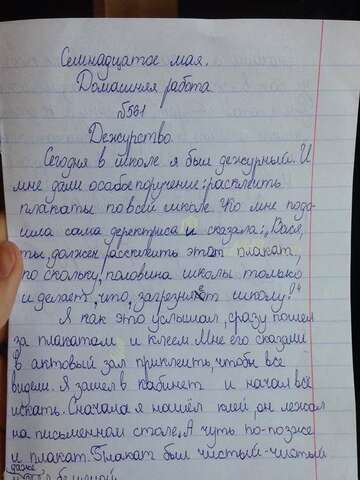 Семнадцатое мая.
Домашняя работа
№561
Дежурство
Сегодня в школе я был дежурный. И
мне дали особое поручение: расклеить
плакаты по всей школе. Ко мне подо-
шла сама деректриса и сказала: „Вася,
ты должен расклеить этот плакат,
по скольку, половина школы только
и делает, что, загрезняет школу!"
Я как это услышал, сразу пошел
за плакатом и клеем. Мне его сказали
в актовый зал приклеить, чтобы все
видели. Я зашел в кабинет и начал всё
искать. Сначала я нашёл клей, он лежал
на письменном столе. А чуть по-позже
и плакат. Плакат был чистый-чистый
даже